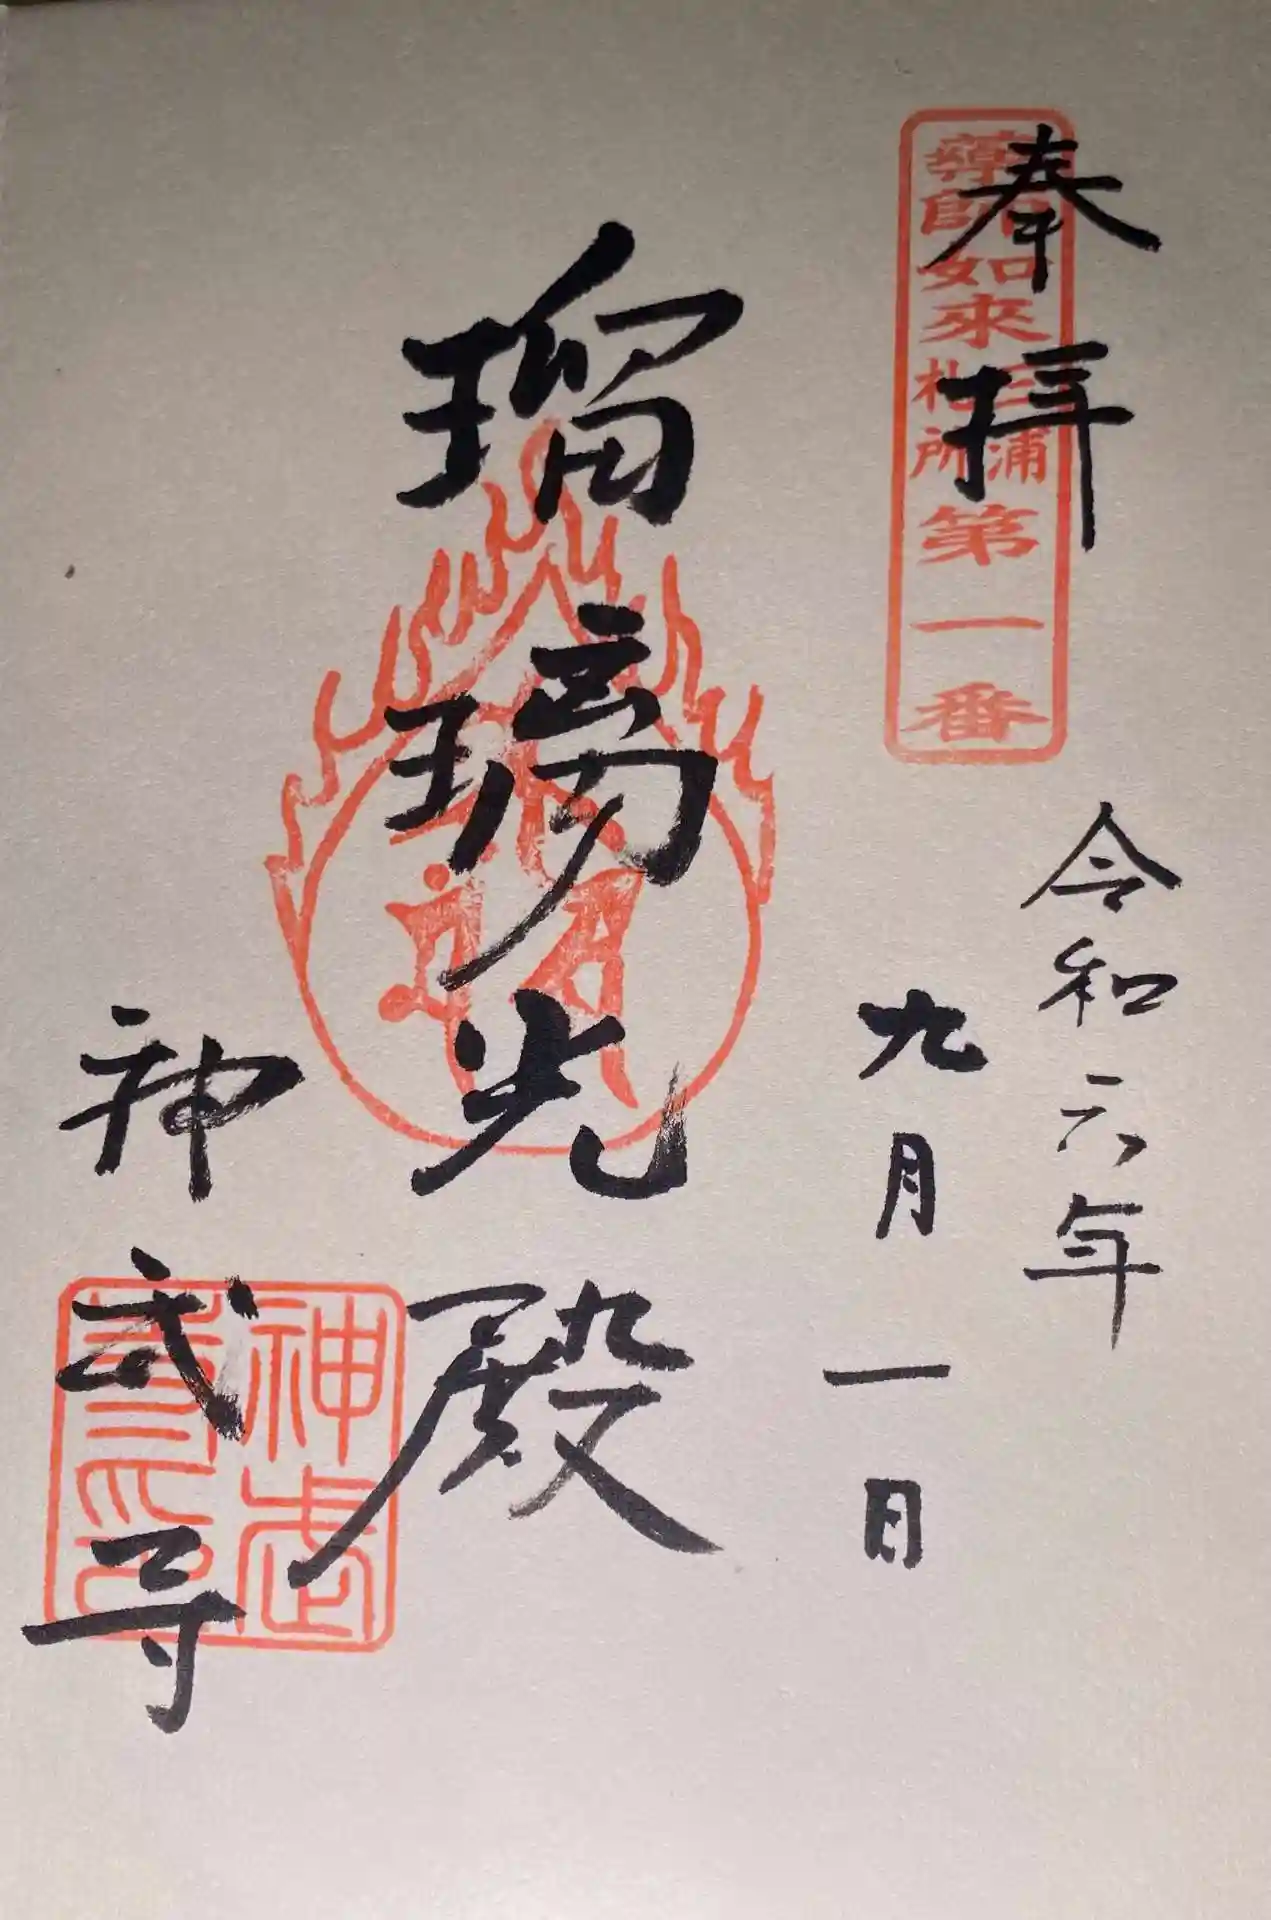 奉拝
薬師如来三浦札所第一番
令和六年
九月一日
瑠璃光殿
神武寺
神武寺印